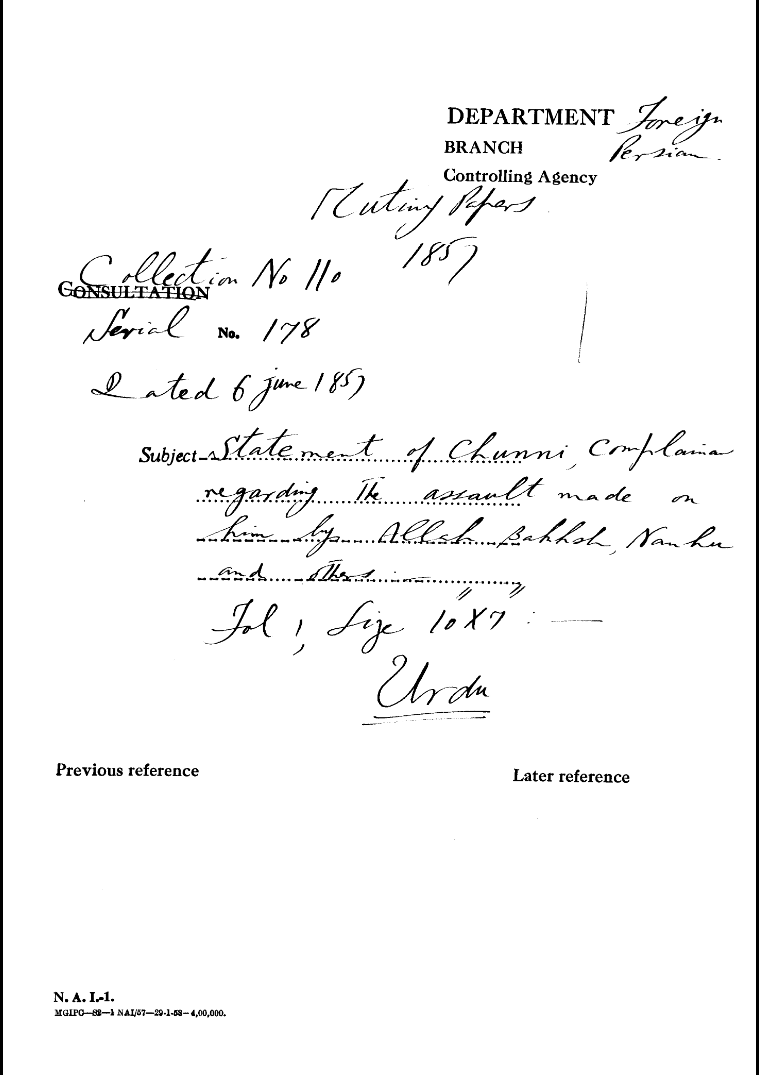 DEPARTMENT Foreign
BRANCH Persian.
Controlling Agency
Mutiny Papers
1857
Collection No 110
CONSULTATION
Serial No. 178
Dated 6 June 1857
Subject Statement of Chunni, Complaina
regarding The assault made on
him by Allah Bakhsh, Nanhu
and others
Fol 1, Size 10" X 7" :—
Urdu
Previous reference
Later reference
N. A. I.-1.
MGIPC—82—1 NAI/57—29-1-58—4,00,000.